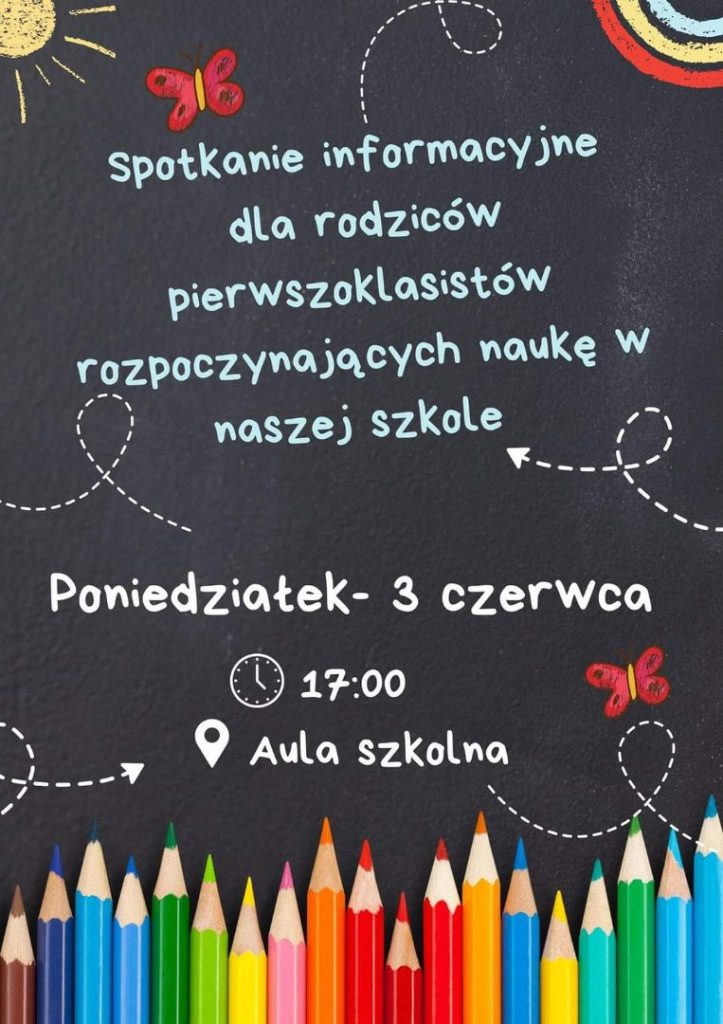 Spotkanie informacyjne
dla rodziców
pierwszoklasistów
rozpoczynających naukę w
naszej szkole
Poniedziałek- 3 czerwca
17:00
Aula szkolna